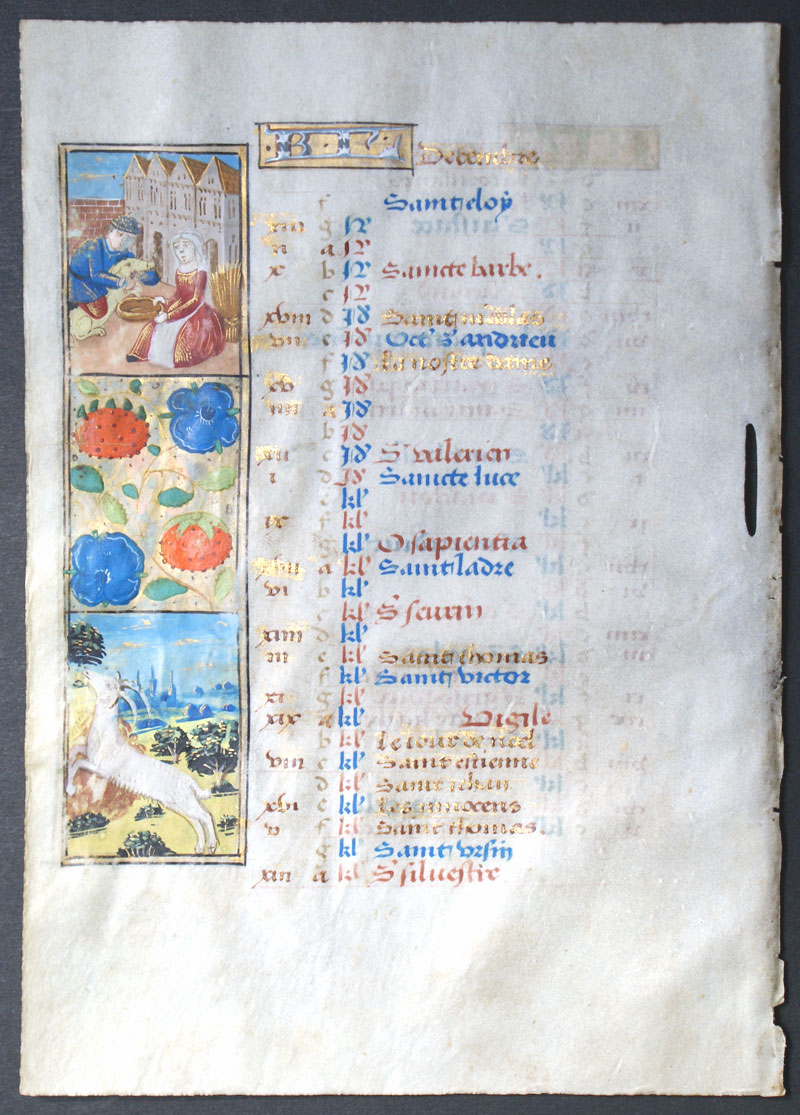 KL Decembre
f Sainct eloy
xiii g
ii a
x b Saincte barbe.
c
xviii d Sainct nicolas
vii e Oct S andrieu
f La nostre dame
xv g
iiii a
b
xii c S valerien
i d Saincte luce
e kl
ix f kl
g kl O sapientia
xvii a kl Sainct ladre
vi b kl
c kl S seurin
xiiii d kl
iii e kl Sainct thomas
f kl Sainct victor
xi g kl
xix a kl Vigile
b kl Le iour de noel
viii c kl Sainct estienne
d kl Sainct iehan
xvi e kl Les innocens
v f kl Sainct thomas
g kl Sainct ursin
xiii a kl S silvestre